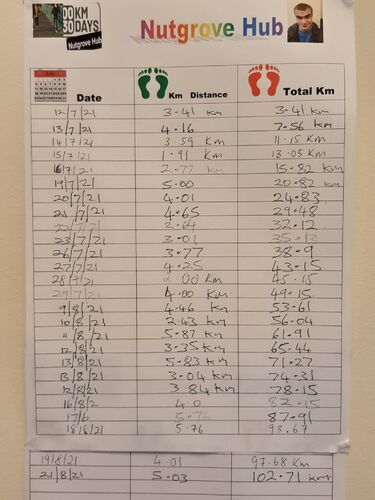 00KM
30 DAYS
Nutgrove Hub
Nutgrove Hub
July
Date Km Distance Total Km
12/7/21 3.41 km 3.41 km
13/7/21 4.16 7.56 km
14/7/21 3.59 km 11.15 Km
15/7/21 1.91 km 13.05 Km
16/7/21 2.77 km 15.82 km
19/7/21 5.00 20.82 km
20/7/21 4.01 24.83
21/7/21 4.65 29.48
22/7/21 2.64 32.12
23/7/21 3.01 35.13
26/7/21 3.77 38.9
27/7/21 4.25 43.15
28/7/21 2.00 Km 45.15
29/7/21 4.00 Km 49.15
9/8/21 4.46 Km 53.61
10/8/21 2.43 km 56.04
11/8/21 5.87 km 61.91
12/8/21 3.35 km 65.44
13/8/21 5.83 km 71.27
13/8/21 3.04 km 74.31
12/8/21 3.84 km 78.15
16/8/2 4.0 82.15
17/8 5.76 87.91
18/8/21 5.76 93.67
19/8/21 4.01 97.68 Km
21/8/21 5.03 102.71 km